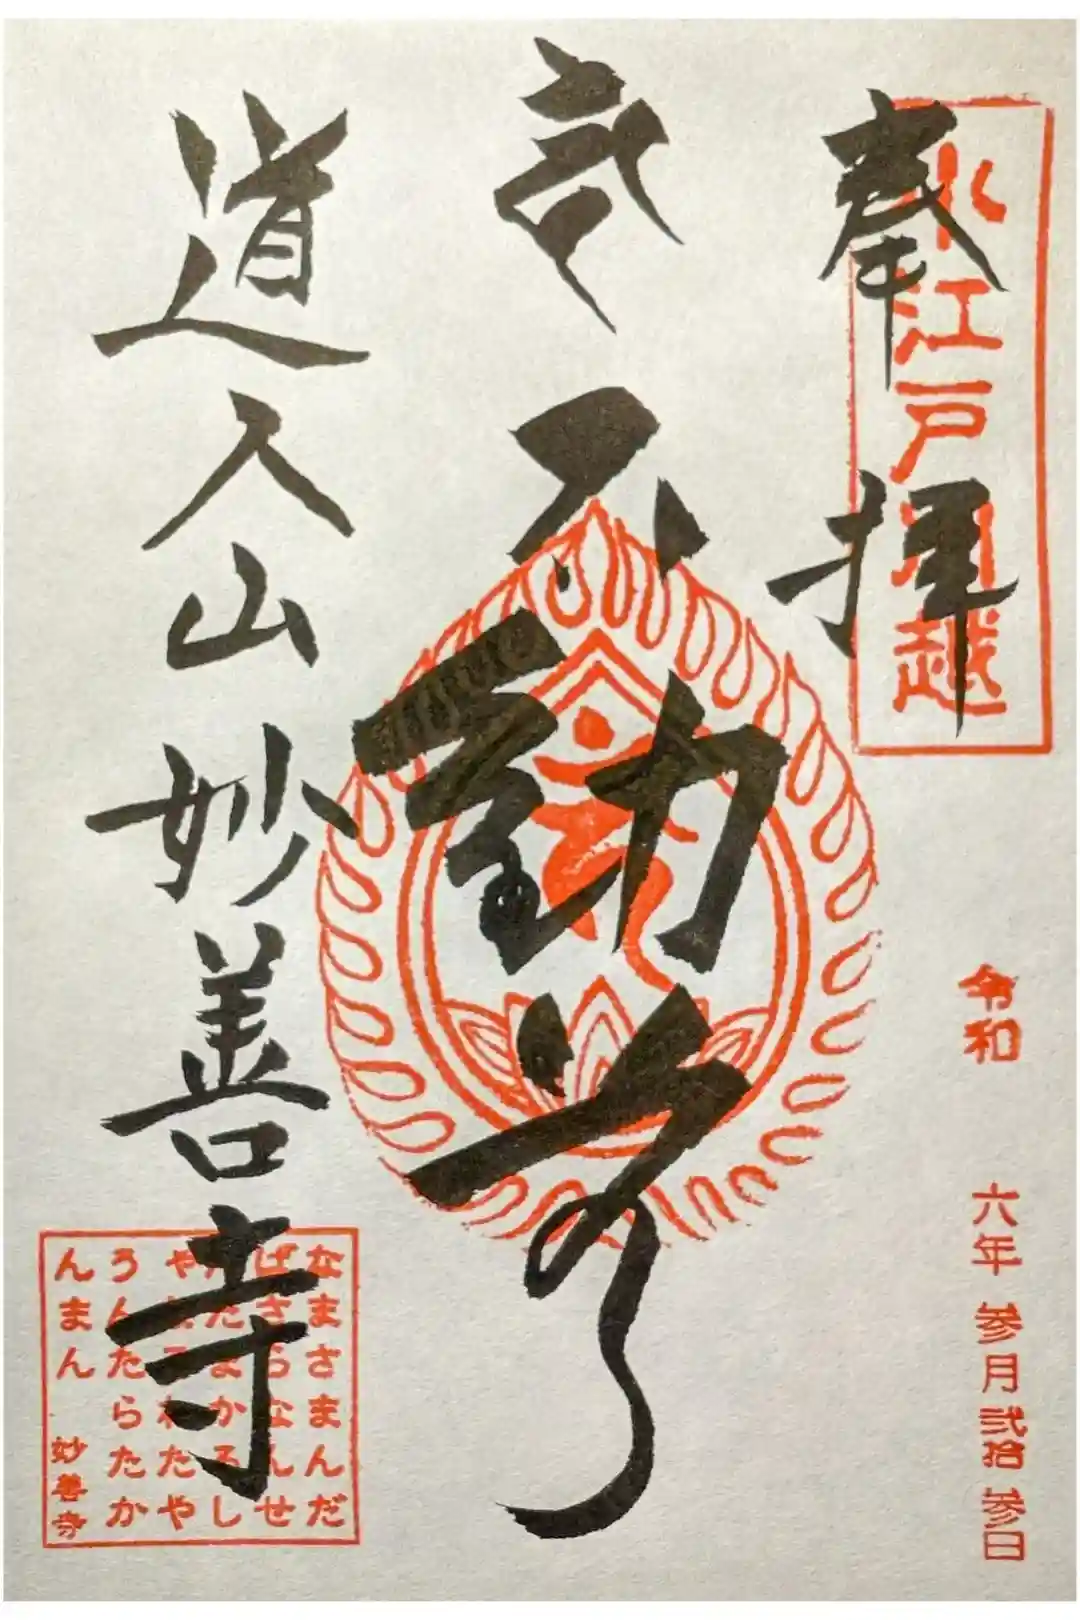 奉拝
小江戸川越
令和 六年 参月 弐拾 参日
不動尊
道入山 妙善寺
なまさまんだ
ばさらなんせ
だまかろし
わたや
うんたらたか
んまん 妙善寺